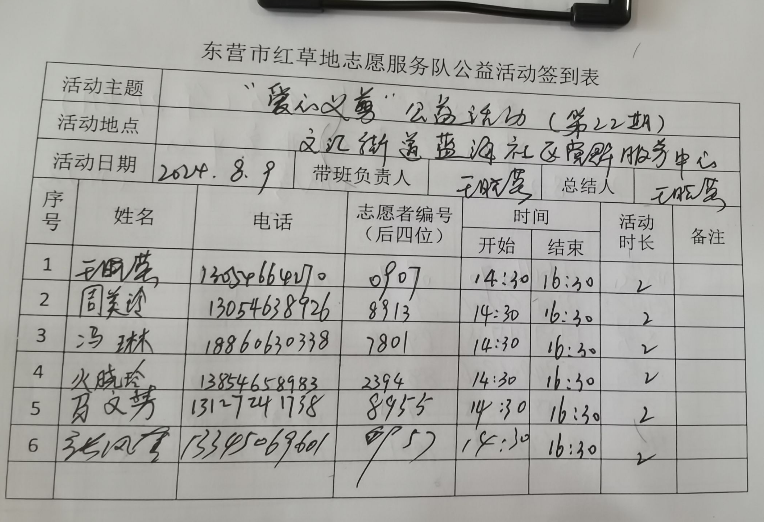 东营市红草地志愿服务队公益活动签到表
活动主题 "爱心义剪"公益活动(第22期)
活动地点 文汇街道蓝海社区党群服务中心
活动日期 2024.8.9 带班负责人 王晓莹 总结人 王晓莹
序号 姓名 电话 志愿者编号(后四位) 时间 开始 结束 活动时长 备注
1 王晓莹 13054664270 0907 14:30 16:30 2
2 周美玲 13054638926 8913 14:30 16:30 2
3 冯琳 18860630338 7801 14:30 16:30 2
4 火晓玲 13854658983 2394 14:30 16:30 2
5 文芳 13127241738 8955 14:30 16:30 2
6 张风 13345069601 14:30 16:30 2